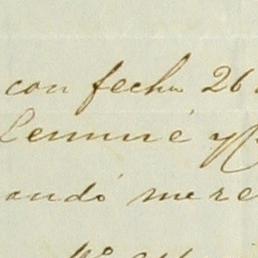 con fecha 26
Lemmé y
ando mere